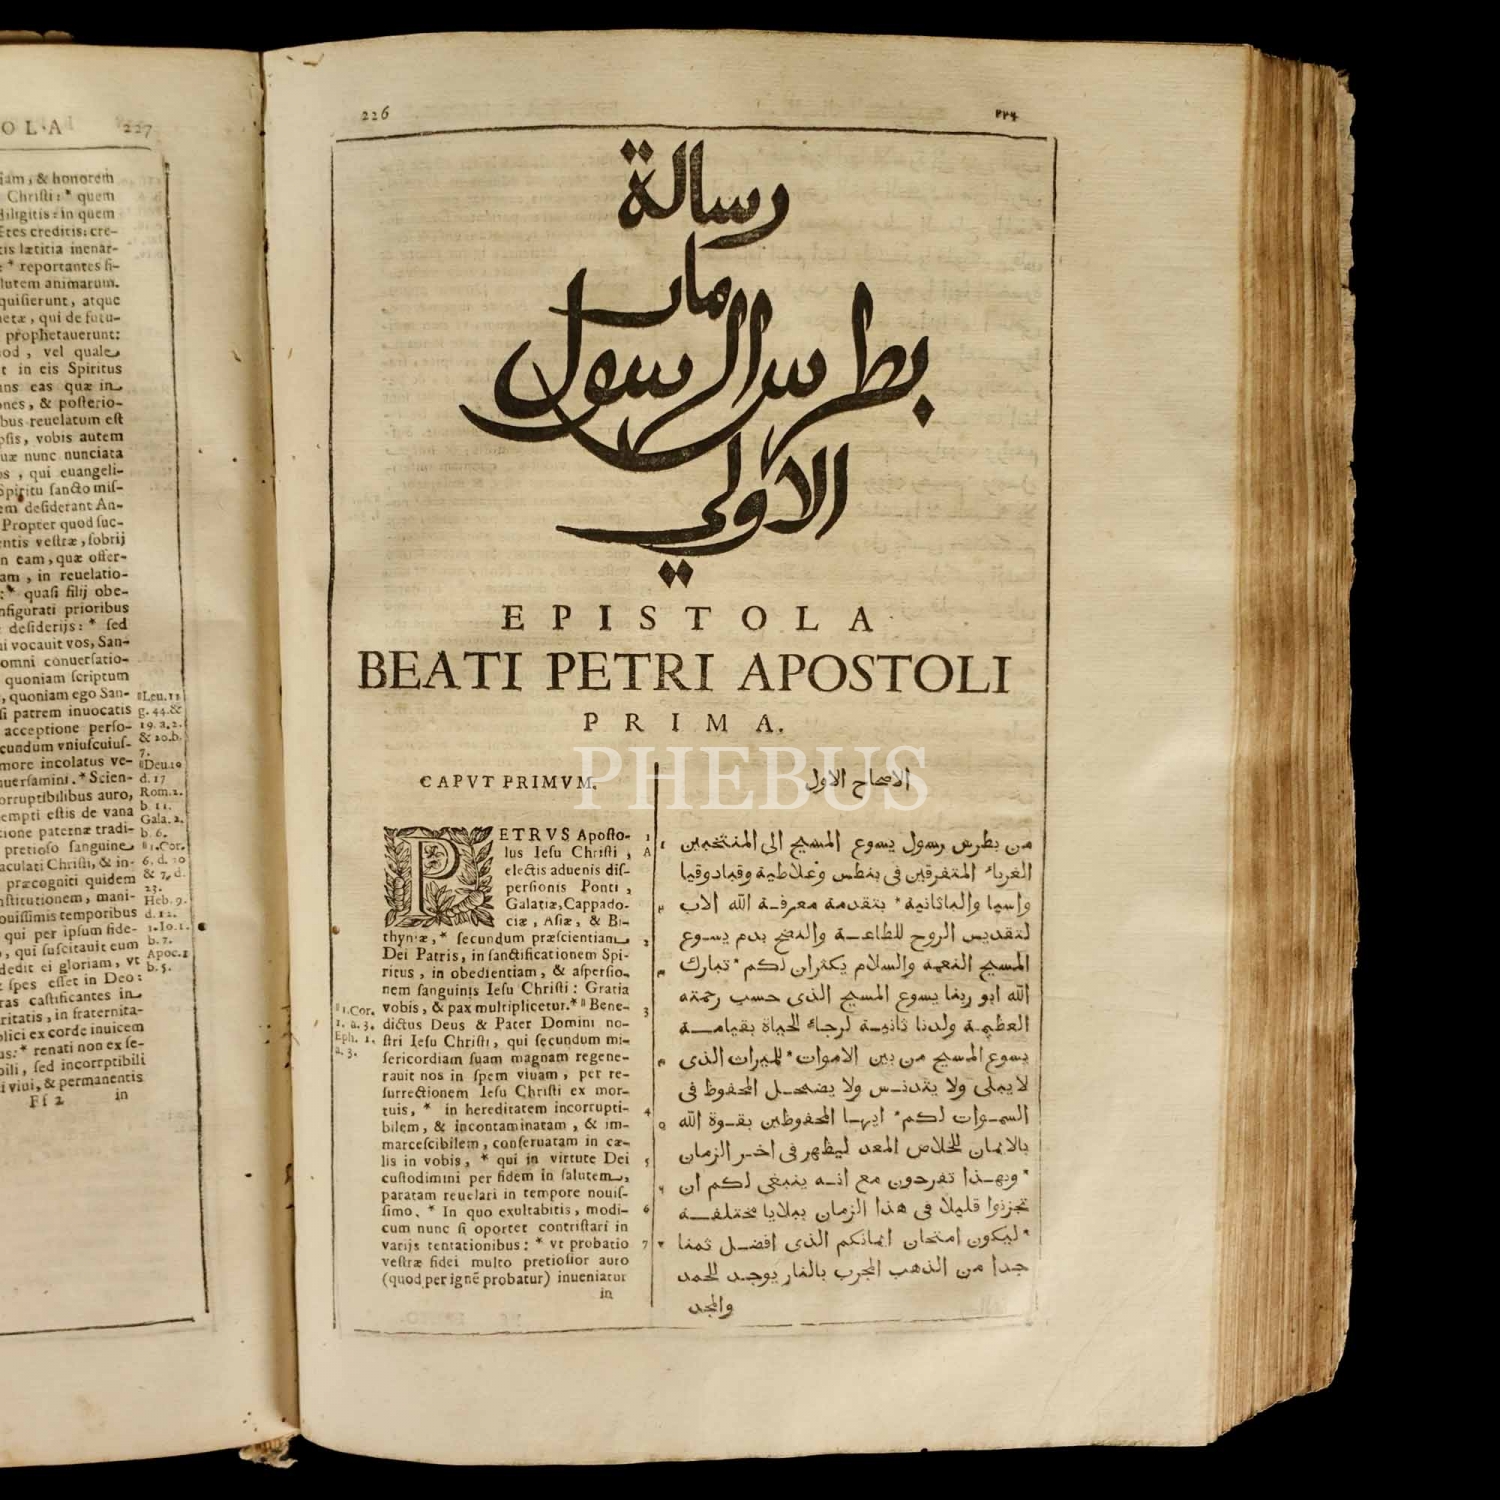 226
٢٢٦
رسالة
مار
بطرس الرسول
الاولي
EPISTOLA
BEATI PETRI APOSTOLI
PRIMA.
PHEBUS
CAPVT PRIMVM.
PETRVS Aposto-
lus Iesu Christi,
electis aduenis dis-
persionis Ponti,
Galatiæ, Cappado-
ciæ, Asiæ, & Bi-
thyniæ, * secundum præscientiam
Dei Patris, in sanctificationem Spi-
ritus, in obedientiam, & aspersio-
nem sanguinis Iesu Christi: Gratia
vobis, & pax multiplicetur. * || Bene-
dictus Deus & Pater Domini no-
stri Iesu Christi, qui secundum mi-
sericordiam suam magnam regene-
rauit nos in spem viuam, per re-
surrectionem Iesu Christi ex mor-
tuis, * in hereditatem incorrupti-
bilem, & incontaminatam, & im-
marcescibilem, conseruatam in cæ-
lis in vobis, * qui in virtute Dei
custodimini per fidem in salutem,
paratam reuelari in tempore nouis-
simo. * In quo exultabitis, modi-
cum nunc si oportet contristari in
varijs tentationibus: * vt probatio
vestræ fidei multo pretiosior auro
(quod per ignē probatur) inueniatur
in
||1.Cor.
1. a. 3.
Eph. 1.
a. 3.
1
A
2
3
4
5
6
7
الاصحاح الاول
من بطرس رسول يسوع المسيح الى المنتخبين
الغرباء المتفرقين فى بنطس وغلاطية وقبادوقيا
واسيا والباثانية * بتقدمة معرفة الله الاب
لتقديس الروح للطاعة والنضح بدم يسوع
المسيح النعمة والسلام يكثران لكم * تبارك
الله ابو ربنا يسوع المسيح الذى حسب رحمته
العظيمة ولدنا ثانية لرجاء الحياة بقيامة
يسوع المسيح من بين الاموات * للميراث الذى
لا يبلى ولا يتدنس ولا يضمحل المحفوظ فى
السموات لكم * ايها المحفوظين بقوة الله
بالايمان للخلاص المعد ليظهر فى اخر الزمان
* وبهذا تفرحون مع انه ينبغى لكم ان
تحزنوا قليلا فى هذا الزمان ببلايا مختلفة
* ليكون امتحان ايمانكم الذى افضل ثمنا
جدا من الذهب المجرب بالنار يوجد للحمد
والمجد
OLA 227
iam, & honorem
Christi: * quem
diligitis: in quem
etes creditis: cre-
tis lætitia inenar-
: * reportantes fi-
lutem animarum.
quisierunt, atque
netæ, qui de futu-
prophetauerunt:
od, vel quale
t in eis Spiritus
ans eas quæ in
ones, & posterio-
bus reuelatum est
psis, vobis autem
uæ nunc nunciata
os, qui euangeli-
Spiritu sancto mis-
em desiderant An-
Propter quod suc-
entis vestræ, sobrij
n eam, quæ offer-
am, in reuelatio-
: * quasi filij obe-
nfigurati prioribus
desiderijs: * sed
ui vocauit vos, San-
omni conuersatio-
quoniam scriptum
, quoniam ego San-
si patrem inuocatis
acceptione perso-
cundum vniuscuius-
more incolatus ve-
nuersamini. * Scien-
orruptibilibus auro,
empti estis de vana
tione paternæ tradi-
pretioso sanguine
aculati Christi, & in-
præcogniti quidem
nstitutionem, mani-
ouissimis temporibus
qui per ipsum fide-
, qui suscitauit eum
dedit ei gloriam, vt
t spes esset in Deo:
ras castificantes in
ritatis, in fraternita-
plici ex corde inuicem
us: * renati non ex se-
bili, sed incorrptibili
i viui, & permanentis
Ff 2 in
||Leu. 11
g. 44. &
19. a. 2.
& 20. b.
7.
||Deu. 10
d. 17
Rom. 2.
b. 11.
Gala. 2.
b. 6.
||1. Cor.
6. d. 20
& 7. d.
23.
Heb. 9.
d. 12.
1. Io. 1.
b. 7.
Apoc. 1
b. 5.